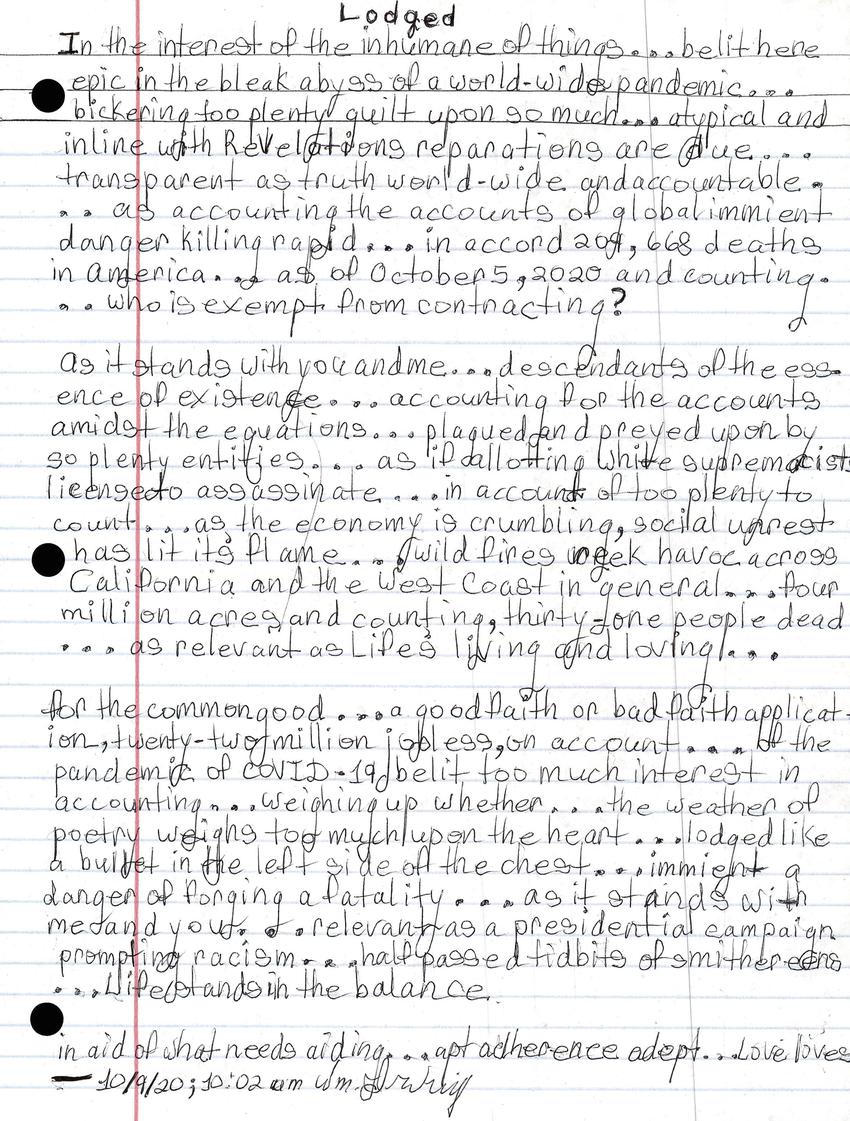 Lodged
In the interest of the inhumane of things... belit here
epic in the bleak abyss of a world-wide pandemic...
bickering too plenty guilt upon so much... atypical and
inline with Revelations reparations are due....
transparent as truth world-wide and accountable.
.. as accounting the accounts of global immient
danger killing rapid.... in accord 209, 668 deaths
in america.... as of October 5, 2020 and counting.
.. who is exempt from contracting?
as it stands with you and me.... descendants of the ess-
ence of existence.... accounting for the accounts
amidst the equations... plagued and preyed upon by
so plenty entities.... as if allotting white supremacists
licensed to assassinate .... in account of too plenty to
count....as the economy is crumbling, social unrest
has lit its flame.... wild fires wreek havoc across
California and the West Coast in general.... four
million acres and counting, thirty-one people dead
... as relevant as Life's living and loving!...
for the common good ....a good faith or bad faith applicat-
ion, twenty-two million jobless, on account.... of the
pandemic of COVID-19, belit too much interest in
accounting... weighing up whether... the weather of
poetry weighs too much upon the heart ....lodged like
a bullet in the left side of the chest....immient a
danger of forging a fatality.... as it stands with
me and you.... relevant as a presidential campaign
prompting racism.... half passed tidbits of smithereens
....Life stands in the balance.
in aid of what needs aiding... apt adherence adept...Love loves
— 10/9/20; 10:02 am Wm.